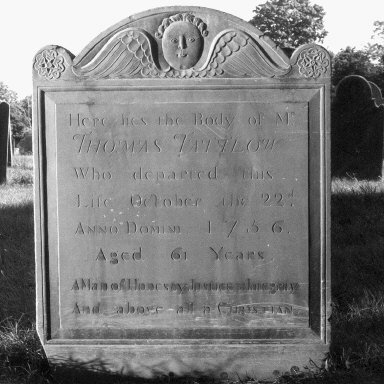 Here lies the Body of Mr
THOMAS TATTLOW
Who departed this
Life October the 22d
ANNO DOMINI 1756.
Aged 61 Years
A Man of Honesty Justice & Integrity
And above all a CHRISTIAN